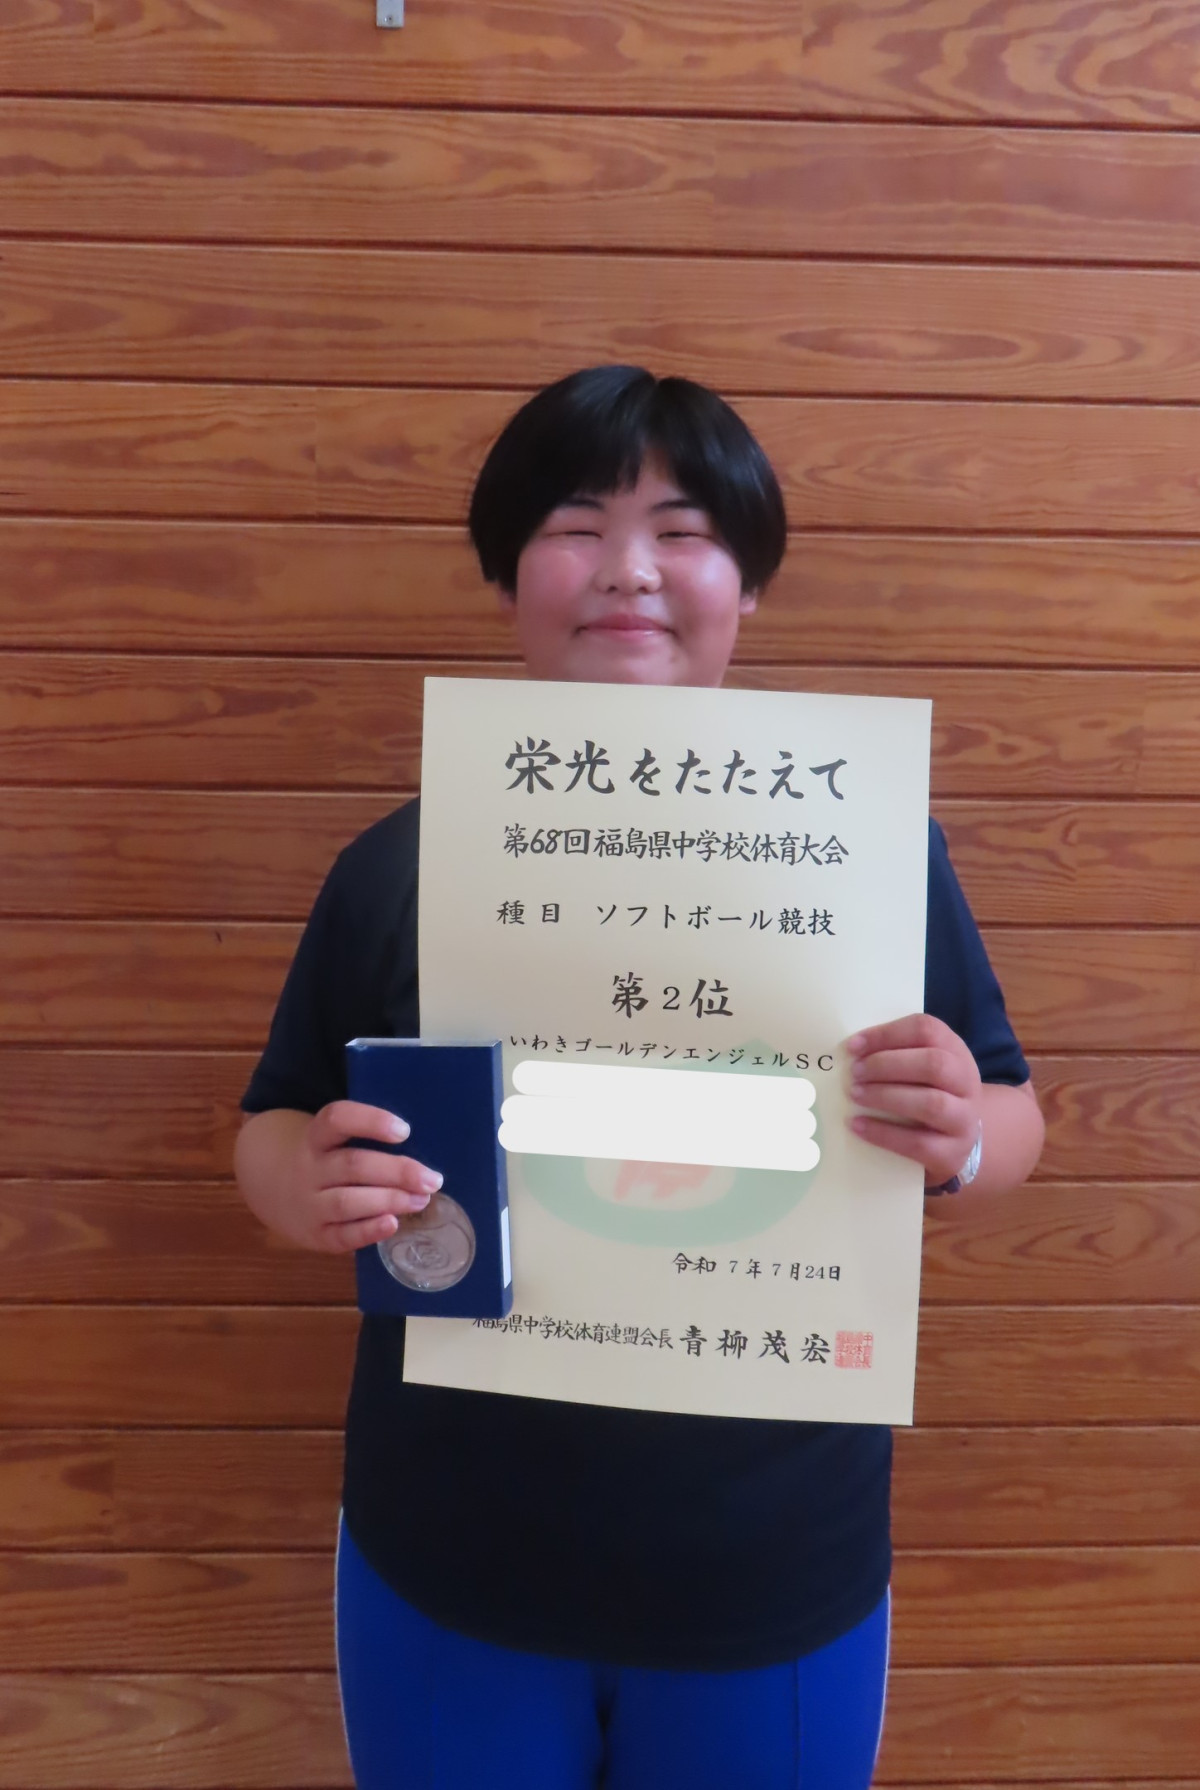 栄光をたたえて
第68回福島県中学校体育大会
種目 ソフトボール競技
第2位
いわきゴールデンエンジェルSC
令和7年7月24日
福島県中学校体育連盟会長 青柳茂宏